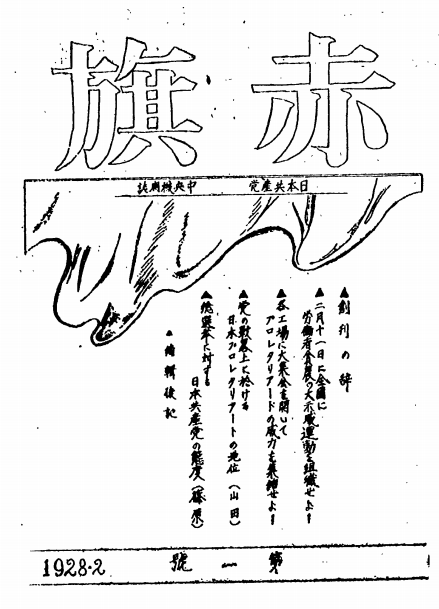 赤旗
日本共産党 中央機関誌
▲創刊の辞
▲二月十一日に全国に
労働者農民の大示威運動を組織せよ!
▲各工場に大集会を開いて
プロレタリアードの威力を集結せよ!
▲党の数幕上に於ける
日本プロレタリアートの地位(山田)
▲総選挙に対する
日本共産党の態度(篠原)
▲編輯後記
第一號
1928・2